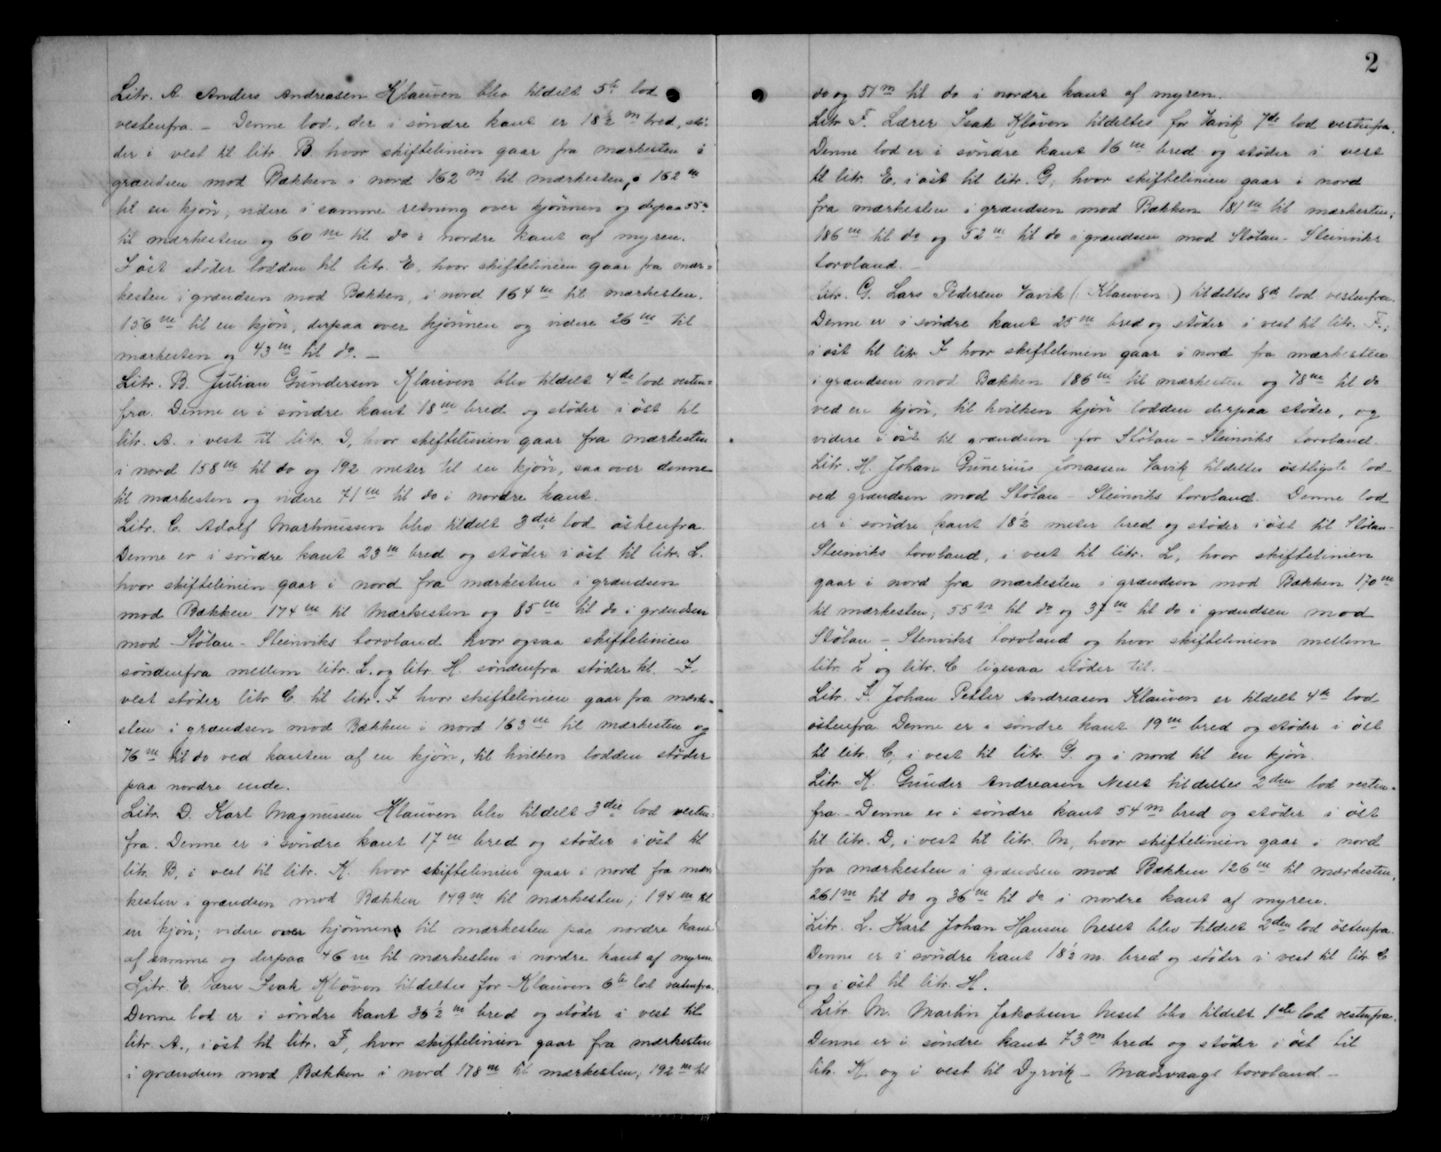 Litr. A. Anders Andreasen Klauven blev tildelt 5te lod
vestenfra. - Denne lod, der i söndre kant er 18½ m bred, stö-
der i vest til litr. B hvor skiftelinien gaar fra mærkesten i
grændsen mod Bækken i nord 162 m til mærkesten, 162 m
til en kjön, videre i samme retning over kjönnen og derpaa 55 m
til mærkesten og 60 m til do i nordre kant af myren.
I öst stöder lodden til litr. E, hvor skiftelinien gaar fra mær-
kesten i grændsen mod Bækken, i nord 164 m til mærkesten.
156 m til en kjön, derpaa over kjönnen og videre 26 m til
mærkesten og 43 m til do. -
Litr. B. Julian Gundersen Klauven blev tildelt 4de lod vesten-
fra. Denne er i söndre kant 18 m bred og stöder i öst til
litr. A. i vest til litr. D, hvor skiftelinien gaar fra mærkesten
i nord 158 m til do og 192 meter til en kjön, saa over denne
til mærkesten og videre 71 m til do i nordre kant.
Litr. C. Adolf Martinussen blev tildelt 3die lod östenfra.
Denne er i söndre kant 23 m bred og stöder i öst til litr. L.
hvor skiftelinien gaar i nord fra mærkesten i grændsen
mod Bækken 174 m til mærkesten og 85 m til do i grændsen
mod Stölan - Steinviks torvland hvor ogsaa skiftelinien
söndenfra mellem litr. L. og litr. H söndenfra stöder til. I
vest stöder litr. C. til litr. I hvor skiftelinien gaar fra mærke-
sten i grændsen mod Bækken i nord 163 m til mærkesten og
76 m til do ved kanten af en kjön, til hvilken lodden stöder
paa nordre ende.
Litr. D. Karl Magnussen Klauven blev tildelt 3die lod vesten-
fra. Denne er i söndre kant 17 m bred og stöder i öst til
litr. B, i vest til litr. K. hvor skiftelinien gaar i nord fra mær-
kesten i grændsen mod Bækken 149 m til mærkesten; 194 m til
en kjön; videre over kjönnen til mærkesten paa nordre kant
af samme og derpaa 46 m til mærkesten i nordre kant af myren
Litr. E. Lærer Isak Klöven tildeltes for Klauven 6te lod vestenfra.
Denne lod er i söndre kant 36½ m bred og stöder i vest til
litr. A., i öst til litr. F, hvor skiftelinien gaar fra mærkesten
i grændsen mod Bækken i nord 178 m til mærkesten; 192 m til
2
do og 51 m til do i nordre kant af myren.
Litr. F. Lærer Isak Klöven tildeltes for Vavik 7de lod vestenfra.
Denne lod er i söndre kant 16 m bred og stöder i vest
til litr. E, i öst til litr. G, hvor skiftelinien gaar i nord
fra mærkesten i grændsen mod Bækken 181 m til mærkesten;
186 m til do og 52 m til do i grændsen mod Stölan - Steinviks
torvland. -
Litr. G. Lars Pedersen Vavik (Klauven) tildeltes 8de lod vestenfra.
Denne er i söndre kant 25 m bred og stöder i vest til litr. F.;
i öst til litr. I hvor skiftelinien gaar i nord fra mærkesten
i grændsen mod Bækken 186 m til mærkesten og 78 m til do
ved en kjön, til hvilken kjön lodden derpaa stöder, og
videre i öst til grændsen for Stölan - Steinviks torvland.
Litr. H. Johan Gunerius Jonassen Vavik tildeltes östligste lod
ved grændsen mod Stölan - Steinviks torvland. Denne lod
er i söndre kant 18½ meter bred og stöder i öst til Stölan-
Steinviks torvland, i vest til litr. L, hvor skiftelinien
gaar i nord fra mærkesten i grændsen mod Bækken 170 m
til mærkesten; 55 m til do og 37 m til do i grændsen mod
Stölan - Steinviks torvland og hvor skiftelinien mellem
litr. L og litr. C ligesaa stöder til. -
Litr. I. Johan Petter Andreasen Klauven er tildelt 4de lod
östenfra. Denne er i söndre kant 19 m bred og stöder i öst
til litr. C, i vest til litr. G. og i nord til en kjön.
Litr. K. Gunder Andreasen Neset tildeltes 2den lod vesten-
fra. - Denne er i söndre kant 54 m bred og stöder i öst
til litr. D, i vest til litr. M, hvor skiftelinien gaar i nord
fra mærkesten i grændsen mod Bækken 126 m til mærkesten,
261 m til do og 36 m til do i nordre kant af myren.
Litr. L. Karl Johan Hansen Neset blev tildelt 2den lod östenfra.
Denne er i söndre kant 18½ m. bred og stöder i vest til litr. C
og i öst til litr. H.
Litr. M. Martin Jakobsen Neset blev tildelt 1ste lod vestenfra.
Denne er i söndre kant 73 m bred og stöder i öst til
litr. K. og i vest til Dyrvik - Madsvaags torvland. -